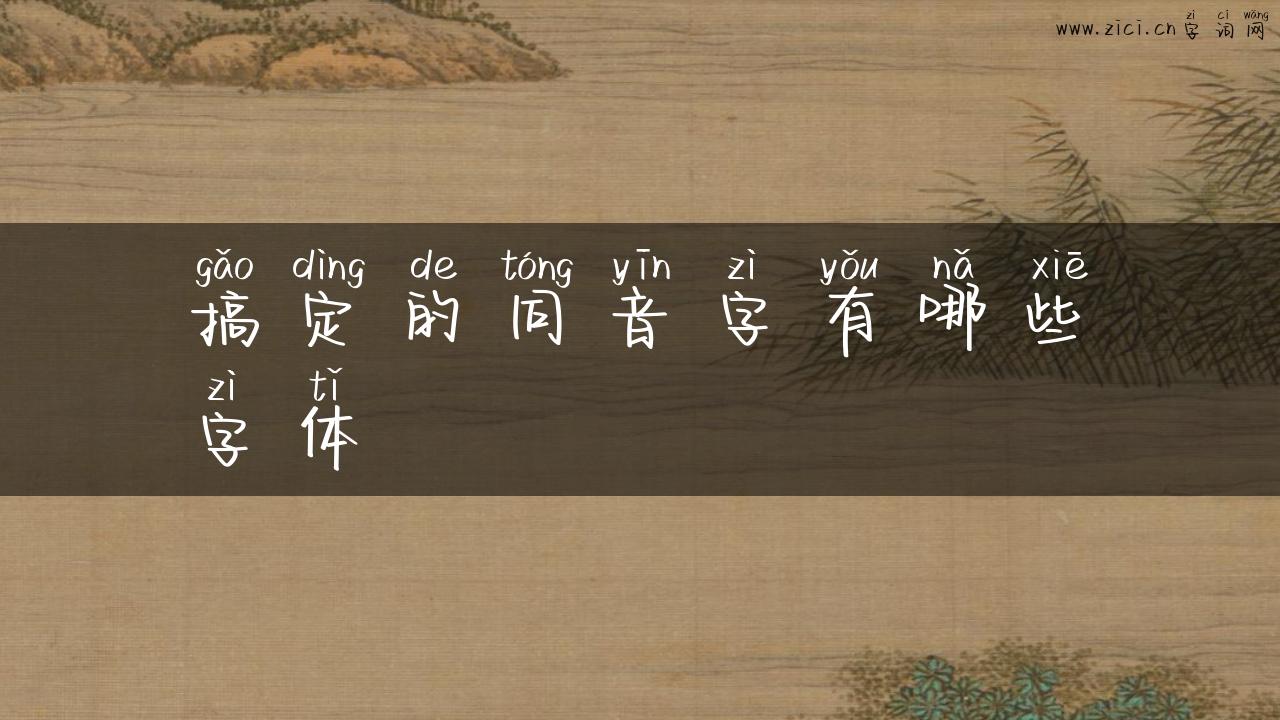 zì cí wǎng
www.zici.cn 字词网
gǎo dìng de tóng yīn zì yǒu nǎ xiē
搞定的同音字有哪些
zì tǐ
字体